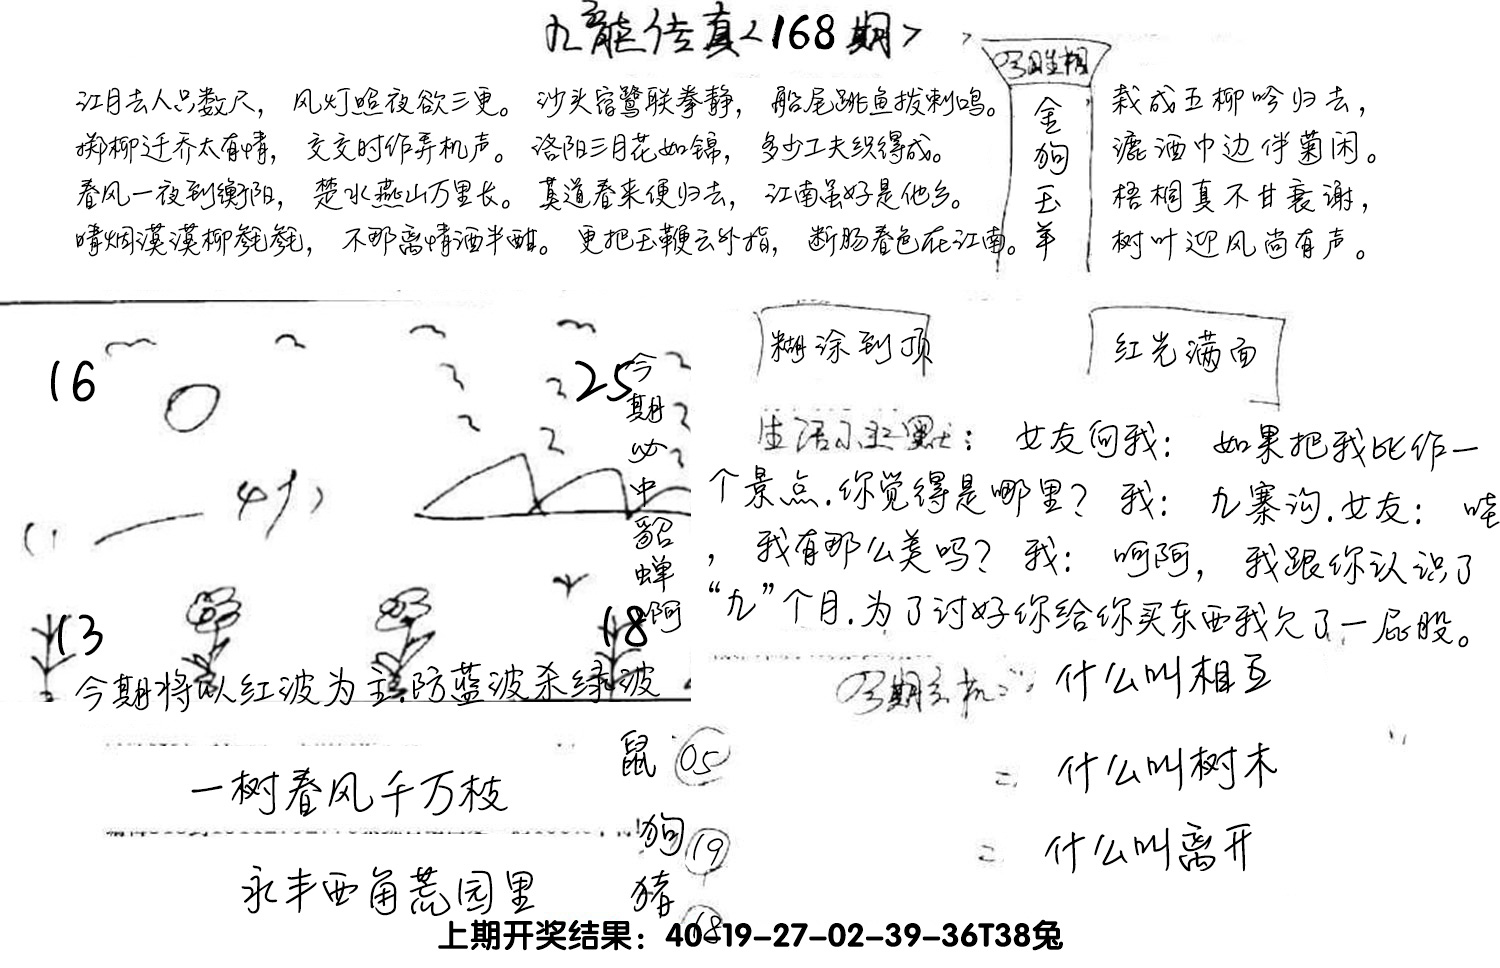 九龙传真<168期>
今期生相
金狗玉羊
江月去人只数尺，风灯照夜欲三更。沙头宿鹭联拳静，船尾跳鱼拨剌鸣。
掷柳迁乔太有情，交交时作弄机声。洛阳三月花如锦，多少工夫织得成。
春风一夜到衡阳，楚水燕山万里长。莫道春来便归去，江南虽好是他乡。
晴烟漠漠柳毿毿，不那离情酒半酣。更把玉鞭云外指，断肠春色在江南。
栽成五柳吟归去，
漉酒中边伴菊闲。
梧桐真不甘衰谢，
树叶迎风尚有声。
16
25
13
18
今期必中貂蝉啊
今期将以红波为主.防蓝波杀绿波
糊涂到顶
红光满面
生活小幽默：女友问我：如果把我比作一
个景点.你觉得是哪里？我：九寨沟.女友：哇
，我有那么美吗？我：呵阿，我跟你认识了
“九”个月.为了讨好你给你买东西我欠了一屁股。
今期玄机
什么叫相互
什么叫树木
什么叫离开
一树春风千万枝
永丰西角荒园里
鼠 05
狗 19
猪 18
上期开奖结果：40-19-27-02-39-36T38兔